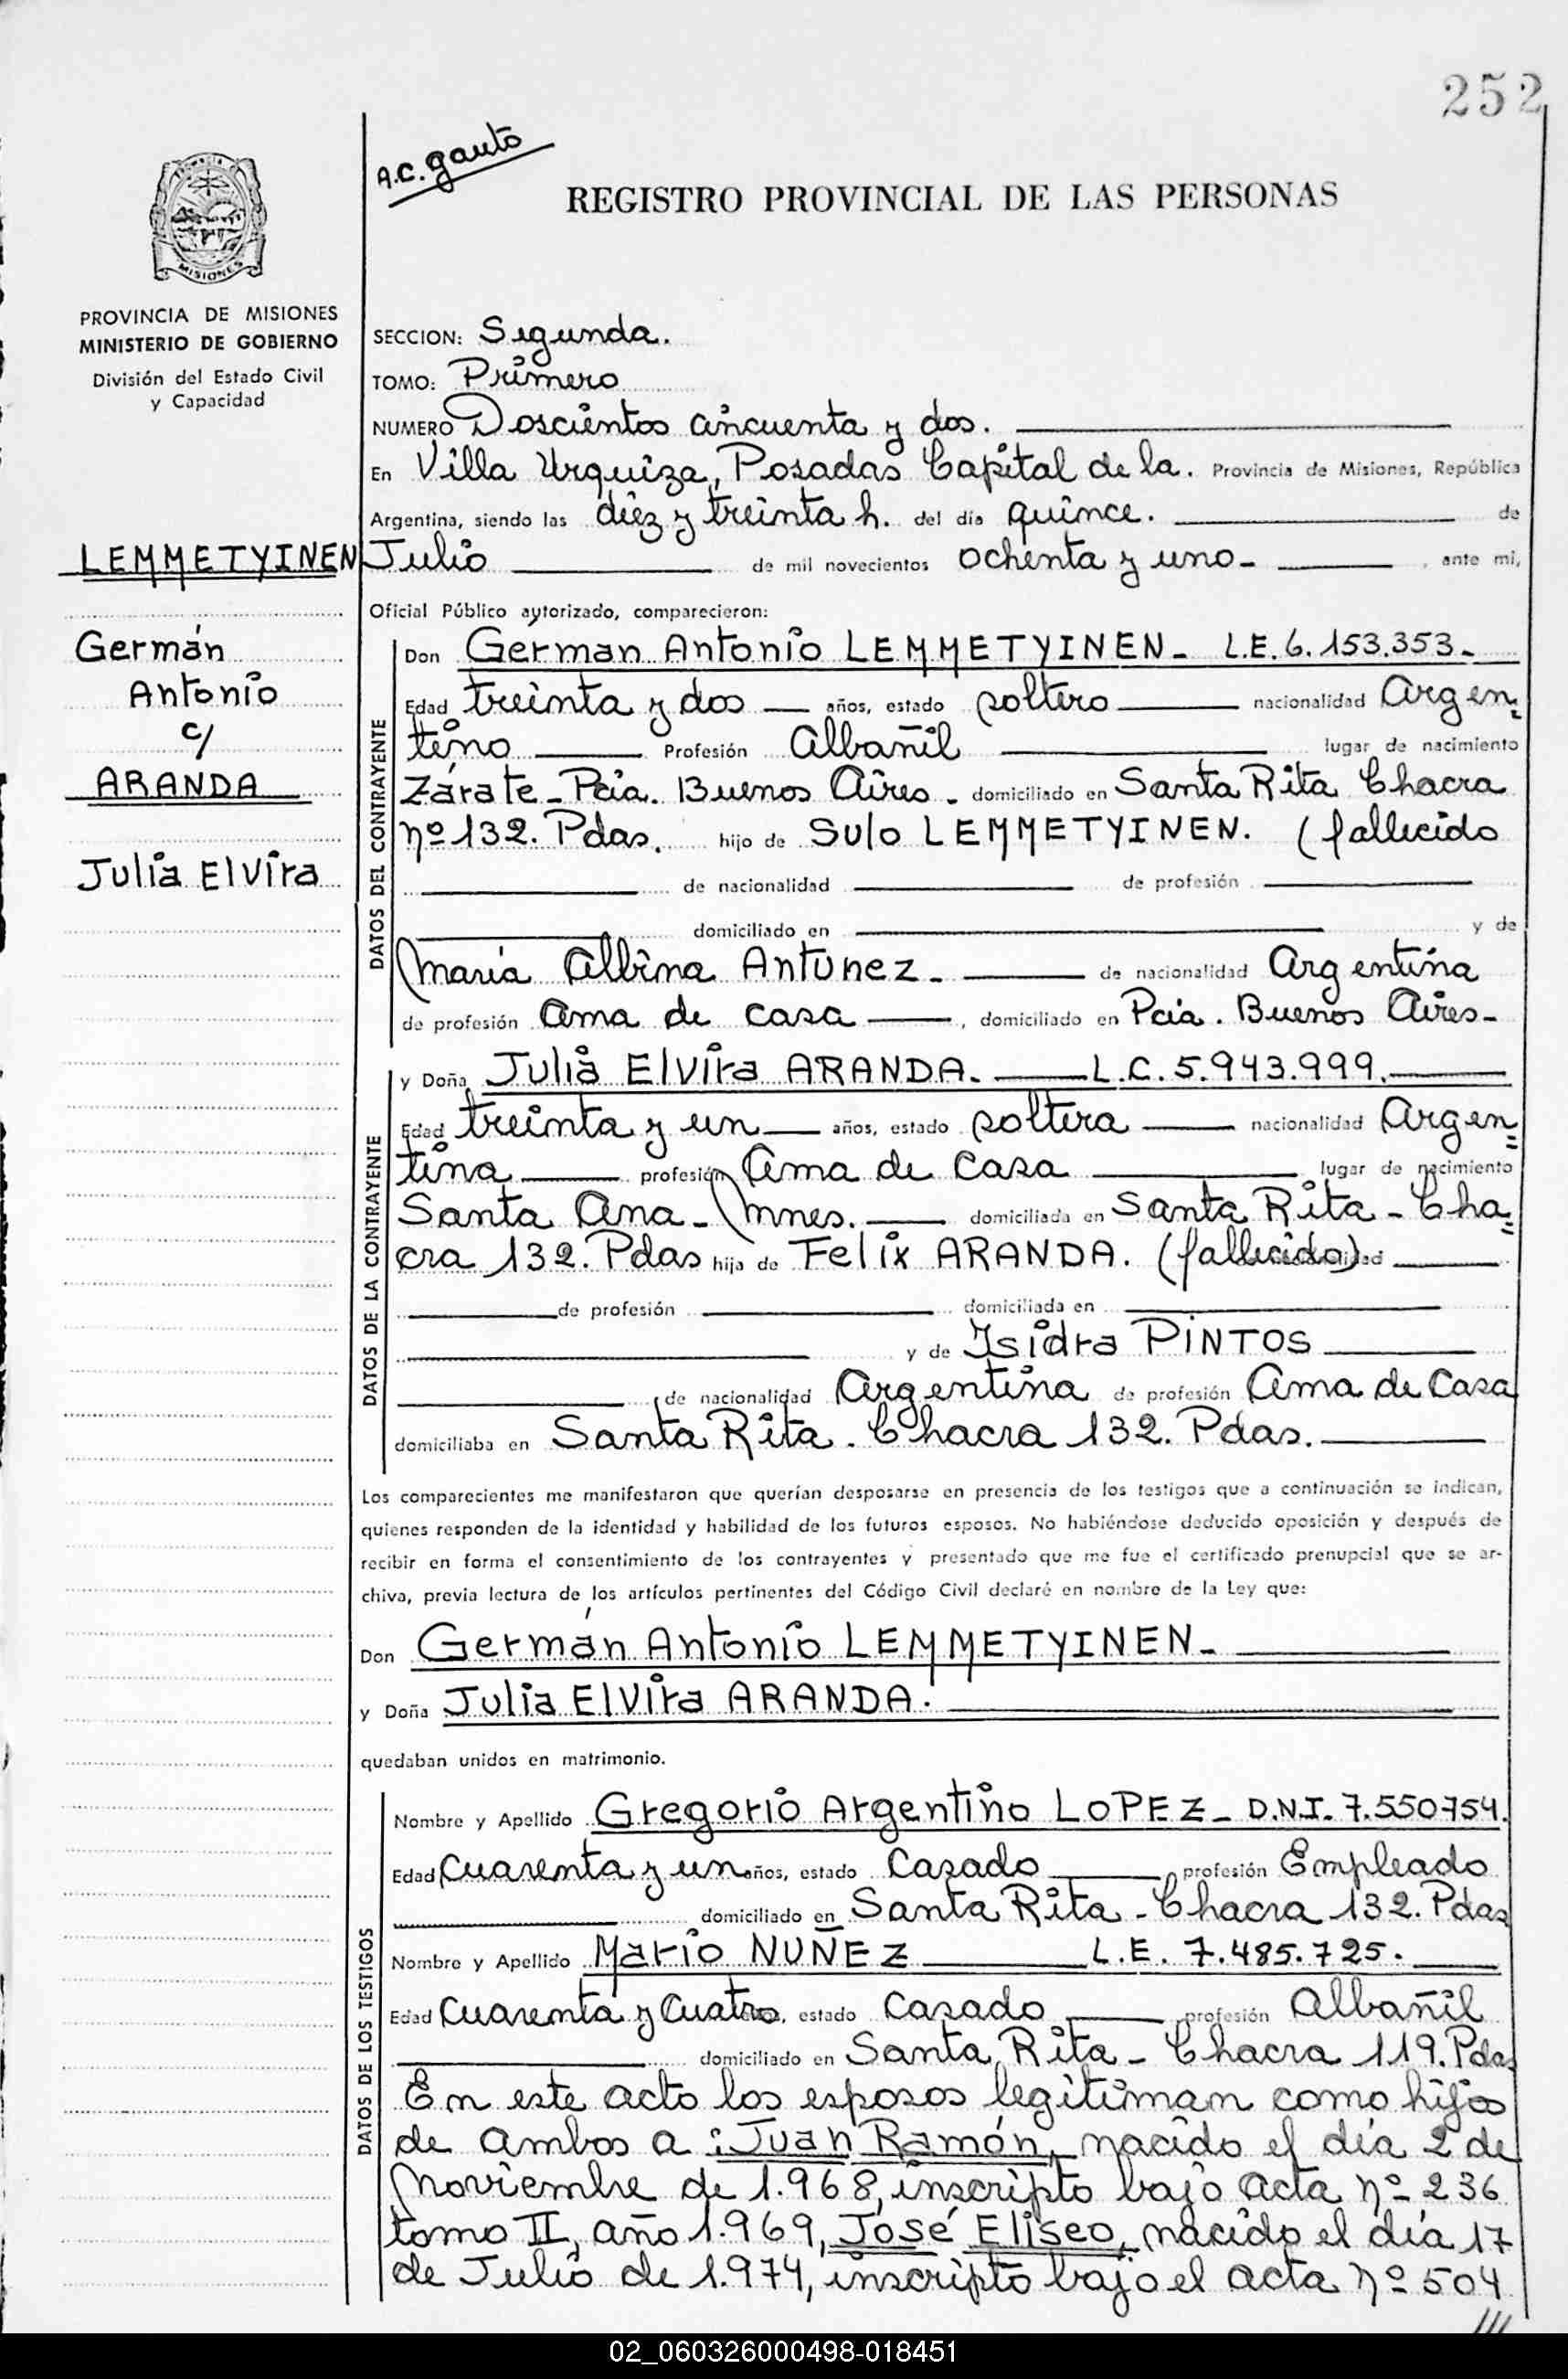 252
A.C. gauto
REGISTRO PROVINCIAL DE LAS PERSONAS
MISIONES
PROVINCIA DE MISIONES
MINISTERIO DE GOBIERNO
División del Estado Civil
y Capacidad
SECCION: Segunda.
TOMO: Primero
NUMERO Doscientos cincuenta y dos.
En Villa Urquiza, Posadas Capital de la. Provincia de Misiones, República
Argentina, siendo las diez y treinta h. del día quince. de
Julio de mil novecientos ochenta y uno- , ante mi,
Oficial Público autorizado, comparecieron:
LEMMETYINEN
Germán
Antonio
c/
ARANDA
Julia Elvira
DATOS DEL CONTRAYENTE
Don German Antonio LEMMETYINEN- L.E. 6.153.353-
Edad treinta y dos años, estado soltero nacionalidad Argen-
tino Profesión Albañil lugar de nacimiento
Zárate-Pcia. Buenos Aires - domiciliado en Santa Rita Chacra
nº 132. Pdas. hijo de Sulo LEMMETYINEN. (fallecido
de nacionalidad de profesión
domiciliado en y de
María Albina Antunez- de nacionalidad Argentina
de profesión Ama de casa , domiciliado en Pcia. Buenos Aires-
DATOS DE LA CONTRAYENTE
y Doña Julia Elvira ARANDA. L.C. 5.943.999.
Edad treinta y un años, estado soltera nacionalidad Argen=
tina profesión Ama de Casa lugar de nacimiento
Santa Ana-Mnes. domiciliada en Santa Rita-Cha=
cra 132. Pdas hija de Felix ARANDA. (fallecido)
de profesión domiciliada en
y de Isidra PINTOS
de nacionalidad Argentina de profesión Ama de Casa
domiciliaba en Santa Rita. Chacra 132. Pdas.
Los comparecientes me manifestaron que querían desposarse en presencia de los testigos que a continuación se indican,
quienes responden de la identidad y habilidad de los futuros esposos. No habiéndose deducido oposición y después de
recibir en forma el consentimiento de los contrayentes y presentado que me fue el certificado prenupcial que se ar-
chiva, previa lectura de los artículos pertinentes del Código Civil declaré en nombre de la Ley que:
Don Germán Antonio LEMMETYINEN-
y Doña Julia Elvira ARANDA.
quedaban unidos en matrimonio.
DATOS DE LOS TESTIGOS
Nombre y Apellido Gregorio Argentino LOPEZ- D.N.I. 7.550754.
Edad Cuarenta y un años, estado Casado profesión Empleado
domiciliado en Santa Rita-Chacra 132. Pdas
Nombre y Apellido Mario NUÑEZ L.E. 7.485.725.
Edad Cuarenta y Cuatro, estado Casado profesión Albañil
domiciliado en Santa Rita-Chacra 119. Pdas
En este acto los esposos legitiman como hijos
de ambos a: Juan Ramón, nacido el día 2 de
Noviembre de 1.968, inscripto bajo acta nº 236
tomo II, año 1.969, José Eliseo, nacido el día 17
de Julio de 1.974, inscripto bajo el acta nº 504
///
02_060326000498-018451